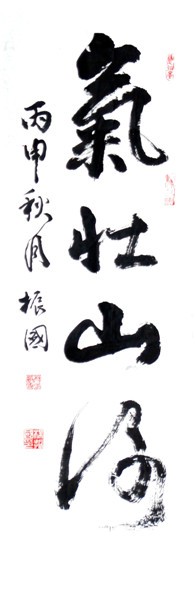 氣壯山河
丙申秋月振國